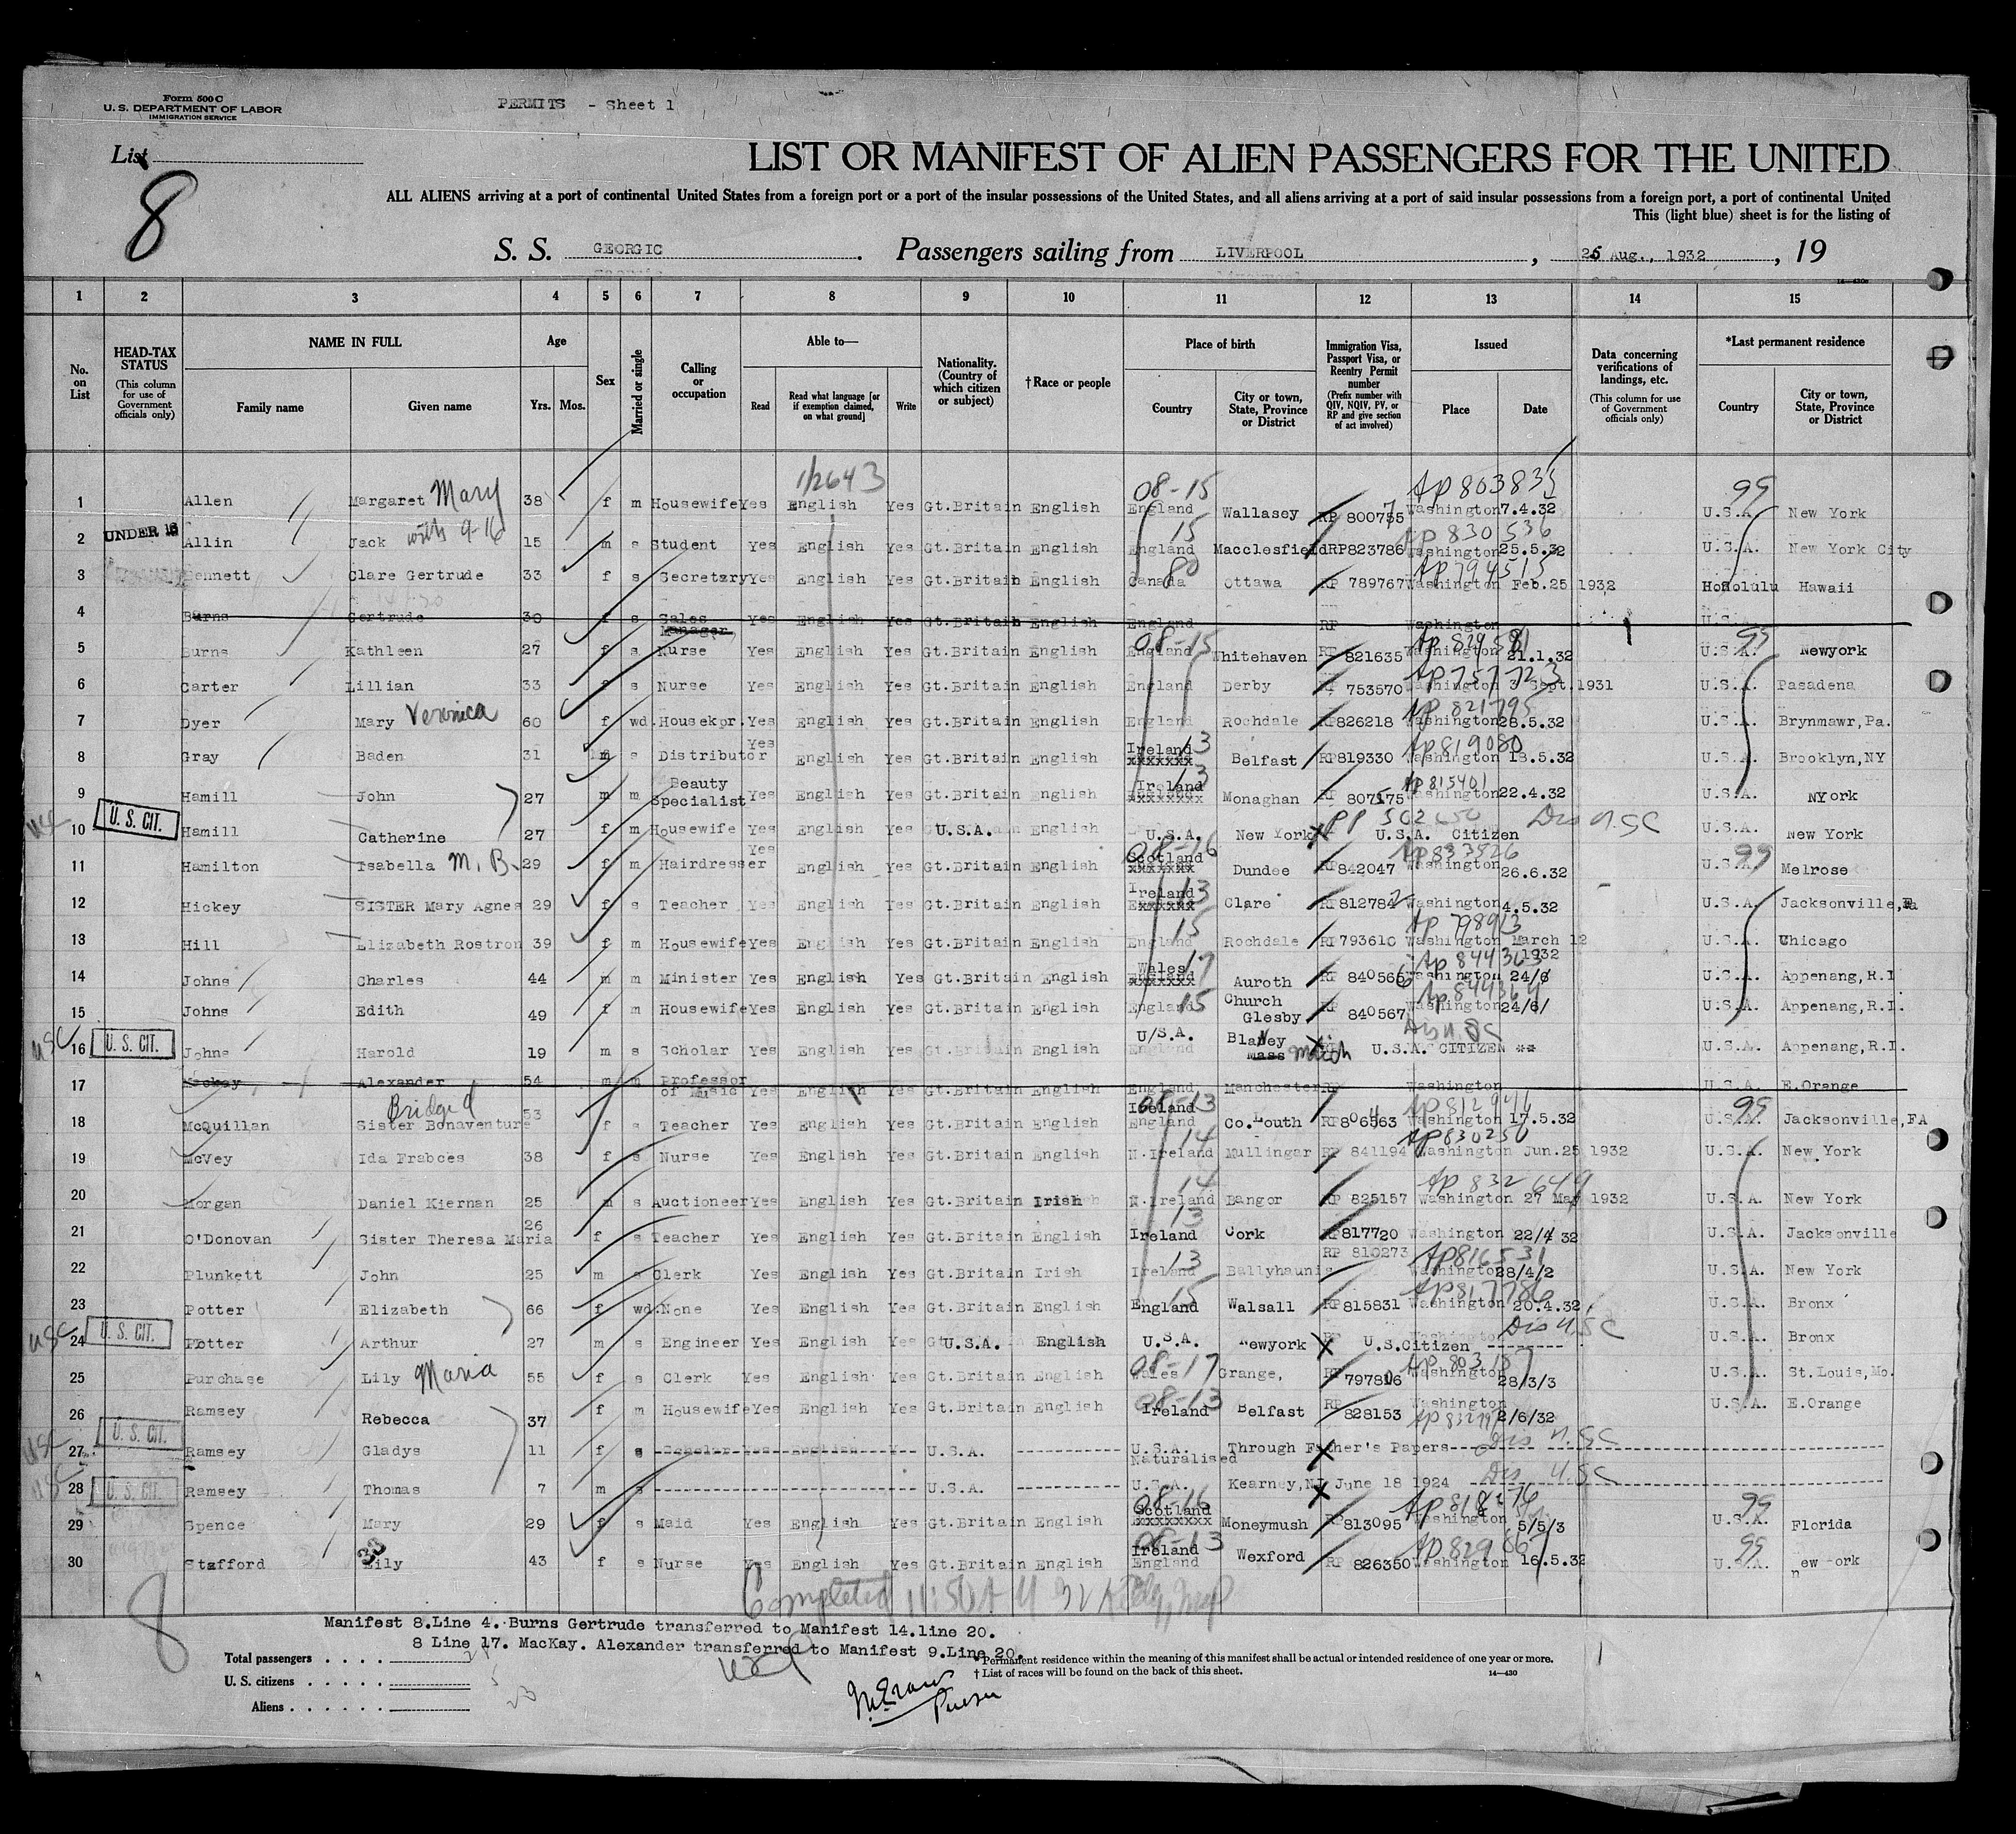 Form 500 C
U. S. DEPARTMENT OF LABOR
IMMIGRATION SERVICE
PERMITS - Sheet 1
List
8
LIST OR MANIFEST OF ALIEN PASSENGERS FOR THE UNITED
ALL ALIENS arriving at a port of continental United States from a foreign port or a port of the insular possessions of the United States, and all aliens arriving at a port of said insular possessions from a foreign port, a port of continental United
This (light blue) sheet is for the listing of
S. S. GEORGIC. Passengers sailing from LIVERPOOL, Aug., 1932, 19
1 2 3 4 5 6 7 8 9 10 11 12 13 14 15
No. on List
HEAD-TAX STATUS (This column for use of Government officials only)
NAME IN FULL Family name Given name
Age Yrs. Mos.
Sex
Married or single
Calling or occupation
Able to— Read Read what language [or if exemption claimed, on what ground] Write
Nationality. (Country of which citizen or subject)
†Race or people
Place of birth Country City or town, State, Province or District
Immigration Visa, Passport Visa, or Reentry Permit number (Prefix number with QIV, NQIV, PV, or RP and give section of act involved)
Issued Place Date
Data concerning verifications of landings, etc. (This column for use of Government officials only)
*Last permanent residence Country City or town, State, Province or District
1 Allen Margaret Mary 38 f m Housewife Yes English Yes Gt.Britain English 08-15 England Wallasey Washington 7.4.32 99 U.S.A. New York
2 UNDER 16 Allin Jack 15 m s Student Yes English Yes Gt.Britain English 15 England Macclesfield RP823786 Washington 25.5.32 Ap 830536 U.S.A. New York City
3 Bennett Clare Gertrude 33 f s Secretary Yes English Yes Gt.Britain English Canada Ottawa RP 789767 Washington Feb.25 1932 Ap 794515 Honolulu Hawaii
4 Burns Gertrude 30 f s Sales Manager Yes English Yes Gt.Britain English England RP Washington U.S.
5 Burns Kathleen 27 f s Nurse Yes English Yes Gt.Britain English 08-15 England Whitehaven RP 821635 Washington 21.1.32 99 U.S.A. Newyork
6 Carter Lillian 33 f s Nurse Yes English Yes Gt.Britain English England Derby 753570 Washington Sept.1931 Ap 757723 U.S.A. Pasadena
7 Dyer Mary Veronica 60 f wd. Housekpr. Yes English Yes Gt.Britain English England Rochdale RP826218 Washington 28.5.32 Ap 821795 U.S.A. Brynmawr,Pa.
8 Gray Baden 31 m s Distributor Yes English Yes Gt.Britain English Ireland 13 xxxxxxx Belfast RP819330 Washington 18.5.32 Ap 819080 U.S.A. Brooklyn,NY
9 Hamill John 27 m m Beauty Specialist Yes English Yes Gt.Britain English Ireland 13 xxxxxxxx Monaghan RP Washington 22.4.32 Ap 815401 U.S.A. NYork
10 U. S. CIT. Hamill Catherine 27 f m Housewife Yes English Yes U.S.A. English U.S.A. New York U.S.A. Citizen U.S.A. New York
11 Hamilton Isabella M. B. 29 f m Hairdresser Yes English Yes Gt.Britain English 08-16 Scotland xxxxxxx Dundee RP842047 Washington 26.6.32 99 U.S.A. Melrose
12 Hickey SISTER Mary Agnes 29 f s Teacher Yes English Yes Gt.Britain English Ireland 13 Clare RP812784 Washington 4.5.32 U.S.A. Jacksonville,
13 Hill Elizabeth Rostron 39 f m Housewife Yes English Yes Gt.Britain English 15 England Rochdale RP793610 Washington March 12 1932 Ap 798913 U.S.A. Chicago
14 Johns Charles 44 m m Minister Yes English Yes Gt.Britain English Wales 17 xxxxxxx Auroth RP 840566 Washington 24/6 Ap 844363 U.S.A. Appenang,R.I
15 Johns Edith 49 f m Housewife Yes English Yes Gt.Britain English 15 England Church Glesby RP 840567 Washington 24/6/ Ap 844364 U.S.A. Appenang,R.I.
16 USC U. S. CIT. Johns Harold 19 m s Scholar Yes English Yes Gt.Britain English U/S.A. Mass U.S.A. CITIZEN ** U.S.A. Appenang,R.I.
17 Mackay Alexander 54 m m Professor of Music Yes English Yes Gt.Britain English England Manchester RP Washington U.S.A. E.Orange
18 McQuillan Bridged Sister Bonaventure 53 f s Teacher Yes English Yes Gt.Britain English Ireland 08-13 Co.Louth Washington 17.5.32 99 U.S.A. Jacksonville,FA
19 McVey Ida Frabces 38 f s Nurse Yes English Yes Gt.Britain English 14 N.Ireland Mullingar RP 841194 Washington Jun.25 1932 Ap 830250 U.S.A. New York
20 Morgan Daniel Kiernan 25 m s Auctioneer Yes English Yes Gt.Britain Irish 14 N.Ireland Bangor RP 825157 Washington 27 May 1932 Ap 832649 U.S.A. New York
21 O'Donovan Sister Theresa Maria 26 f s Teacher Yes English Yes Gt.Britain English 13 Ireland Cork RP817720 Washington 22/4 32 U.S.A. Jacksonville
22 Plunkett John 25 m s Clerk Yes English Yes Gt.Britain Irish 13 Ireland Ballyhaunis RP 810273 Washington 28/4/2 Ap816531 U.S.A. New York
23 Potter Elizabeth 66 f wd. None Yes English Yes Gt.Britain English 15 England Walsall RP815831 Washington 20.4.32 Ap817786 U.S.A. Bronx
24 USC U. S. CIT. Potter Arthur 27 m s Engineer Yes English Yes U.S.A. English U.S.A. Newyork U.S.Citizen U.S.A. Bronx
25 Purchase Lily Maria 55 f s Clerk Yes English Yes Gt.Britain English 08-17 Wales Grange, Washington 28/3/3 U.S.A. St.Louis,Mo.
26 Ramsey Rebecca 37 f m Housewife Yes English Yes Gt.Britain English 08-13 Ireland Belfast RP 828153 Washington 2/6/32 U.S.A. E.Orange
27 USC U. S. CIT. Ramsey Gladys 11 f s Scholar Yes English Y-- U.S.A. U.S.A. Naturalised Through Father's Papers
28 USC U. S. CIT. Ramsey Thomas 7 m s U.S.A. U.S.A. Kearney,NJ June 18 1924
29 Spence Mary 29 f s Maid Yes English Yes Gt.Britain English 08-16 Scotland xxxxxxxx Moneymush RP813095 Washington 5/5/3 99 U.S.A. Florida
30 Stafford Lily 43 f s Nurse Yes English Yes Gt.Britain English 08-13 Ireland England Wexford RP 826350 Washington 16.5.32 99 U.S.A. New York
Completed
8
Manifest 8.Line 4. Burns Gertrude transferred to Manifest 14.line 20.
8 Line 17. MacKay. Alexander transferred to Manifest 9.Line 20.
Total passengers
U. S. citizens 5
Aliens 23
* Permanent residence within the meaning of this manifest shall be actual or intended residence of one year or more.
† List of races will be found on the back of this sheet.
14—430
Purser